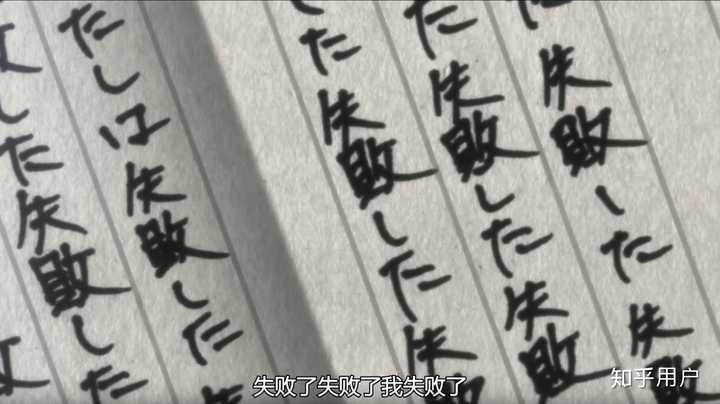 た失敗した失敗
た失敗した失敗
した失敗した失敗
たしは失敗した失
敗した失敗した
失败了失败了我失败了
知乎用户